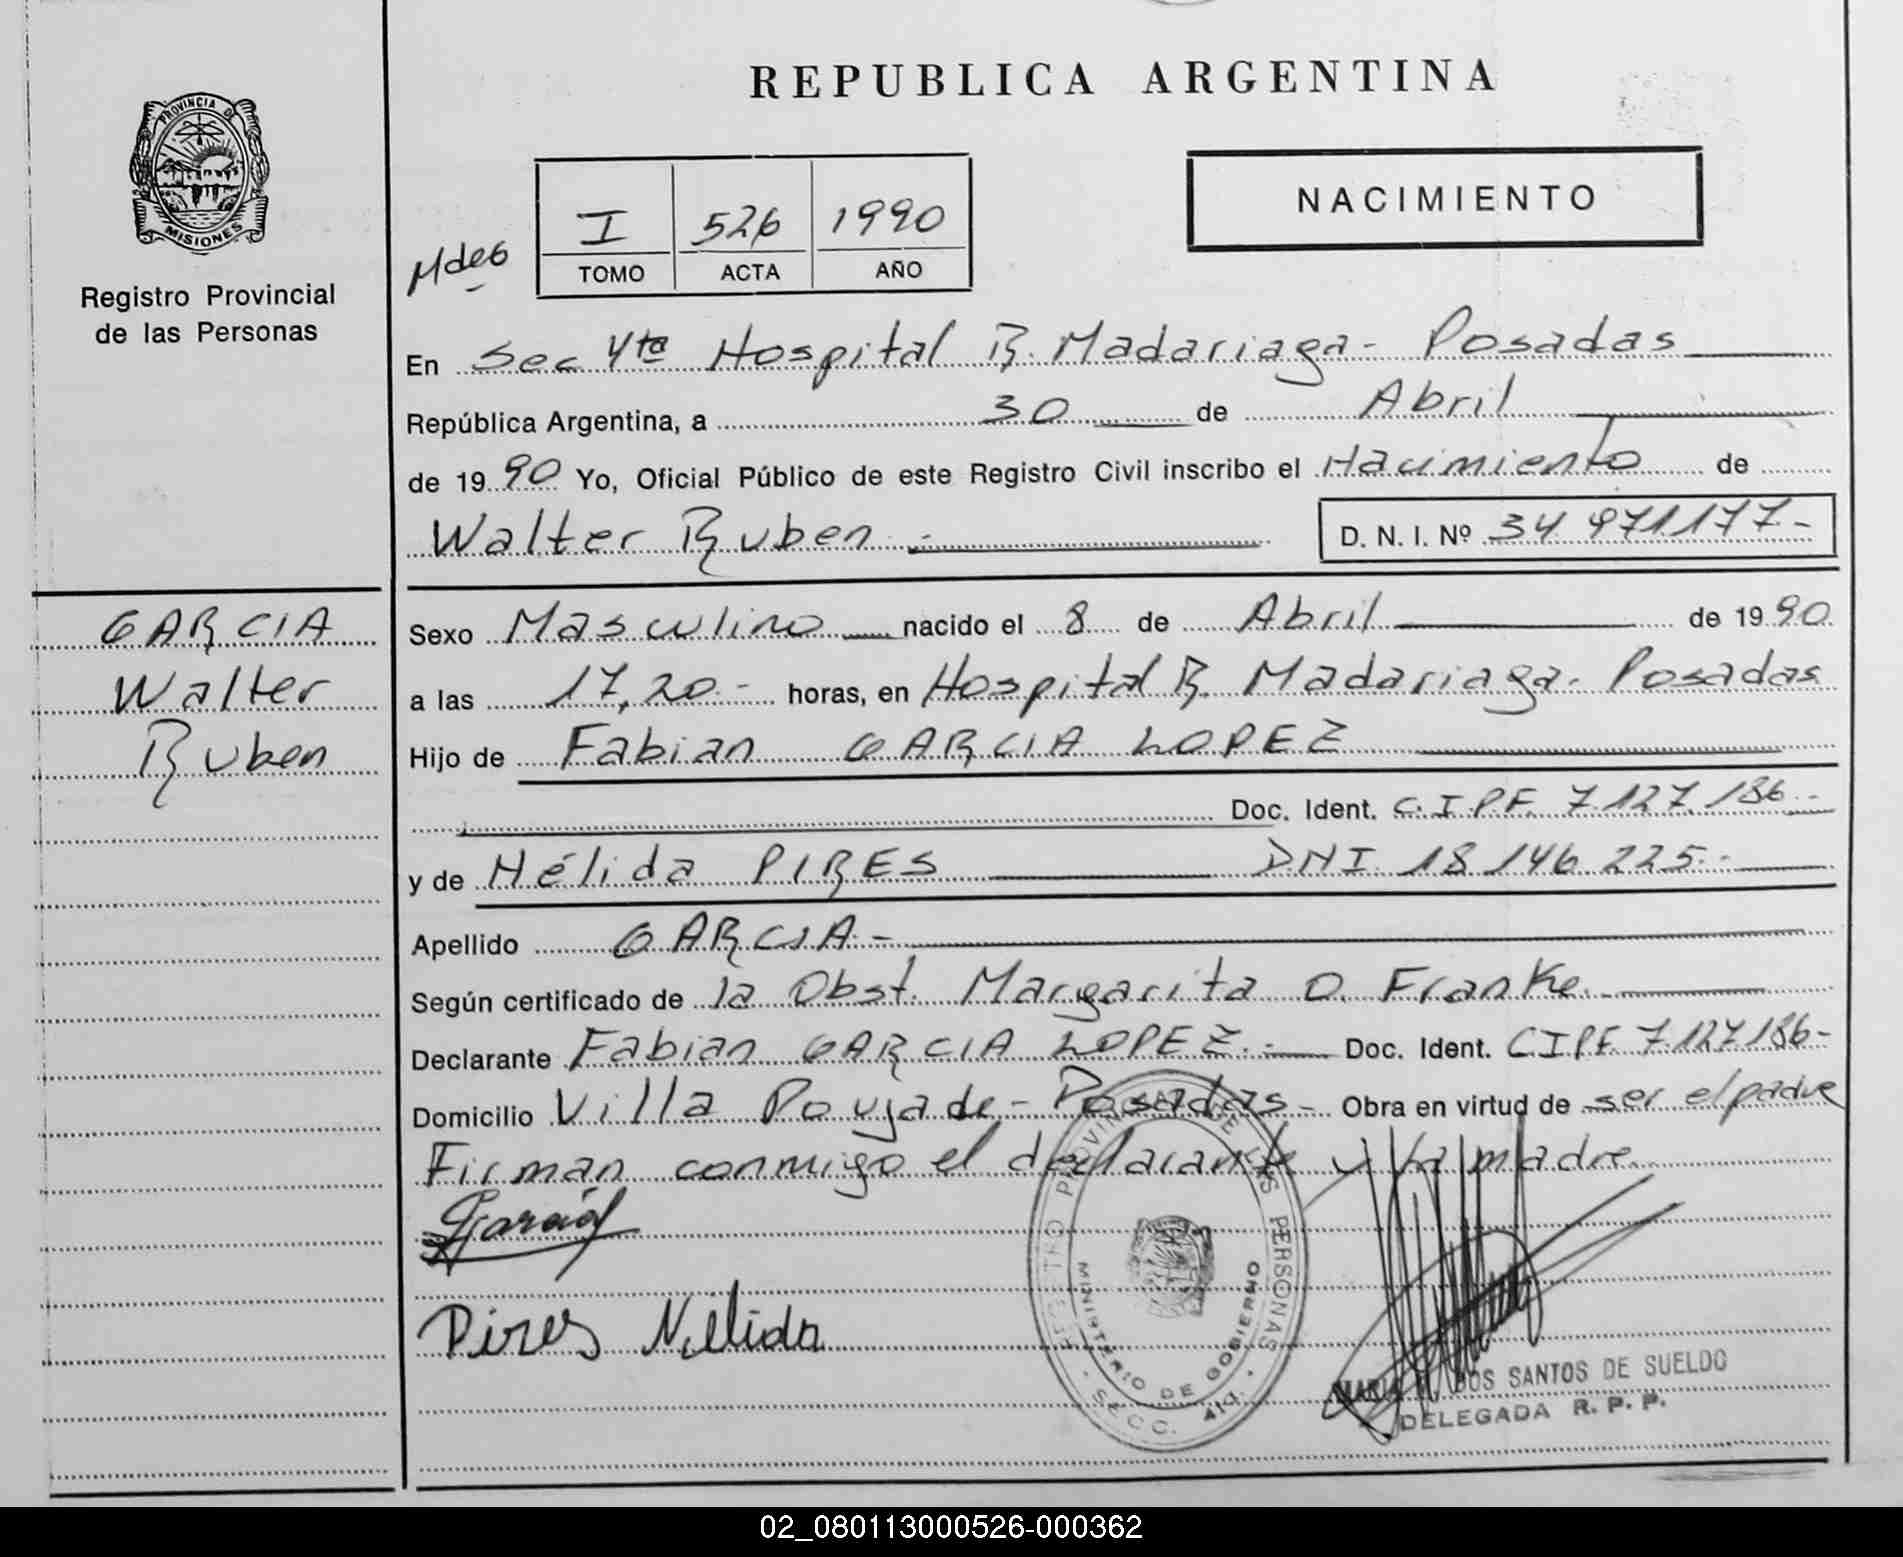 REPUBLICA ARGENTINA
PROVINCIA DE
MISIONES
Registro Provincial
de las Personas
NACIMIENTO
I 526 1990
TOMO ACTA AÑO
En Sec 4ta Hospital R. Madariaga - Posadas
República Argentina, a 30 de Abril
de 1990 Yo, Oficial Público de este Registro Civil inscribo el Nacimiento de
Walter Ruben.- D. N. I. Nº 34 971.177-
GARCIA
Walter
Ruben
Sexo Masculino nacido el 8 de Abril de 1990
a las 17,20.- horas, en Hospital R. Madariaga- Posadas
Hijo de Fabian GARCIA LOPEZ
Doc. Ident. C.I.P.F. 7.127.186.-
y de Nélida PIRES DNI 18.146.225.-
Apellido GARCIA-
Según certificado de la Obst. Margarita O. Franke.
Declarante Fabian GARCIA LOPEZ.- Doc. Ident. CIPF. 7.127.186-
Domicilio Villa Poujade - Posadas - Obra en virtud de ser el padre
Firman conmigo el declarante y la madre.
Garcia
Pires Nélida
REGISTRO PROVINCIAL DE LAS PERSONAS
MINISTERIO DE GOBIERNO
SECC. 4ta.
MARIA DOS SANTOS DE SUELDO
DELEGADA R. P. P.
02_080113000526-000362